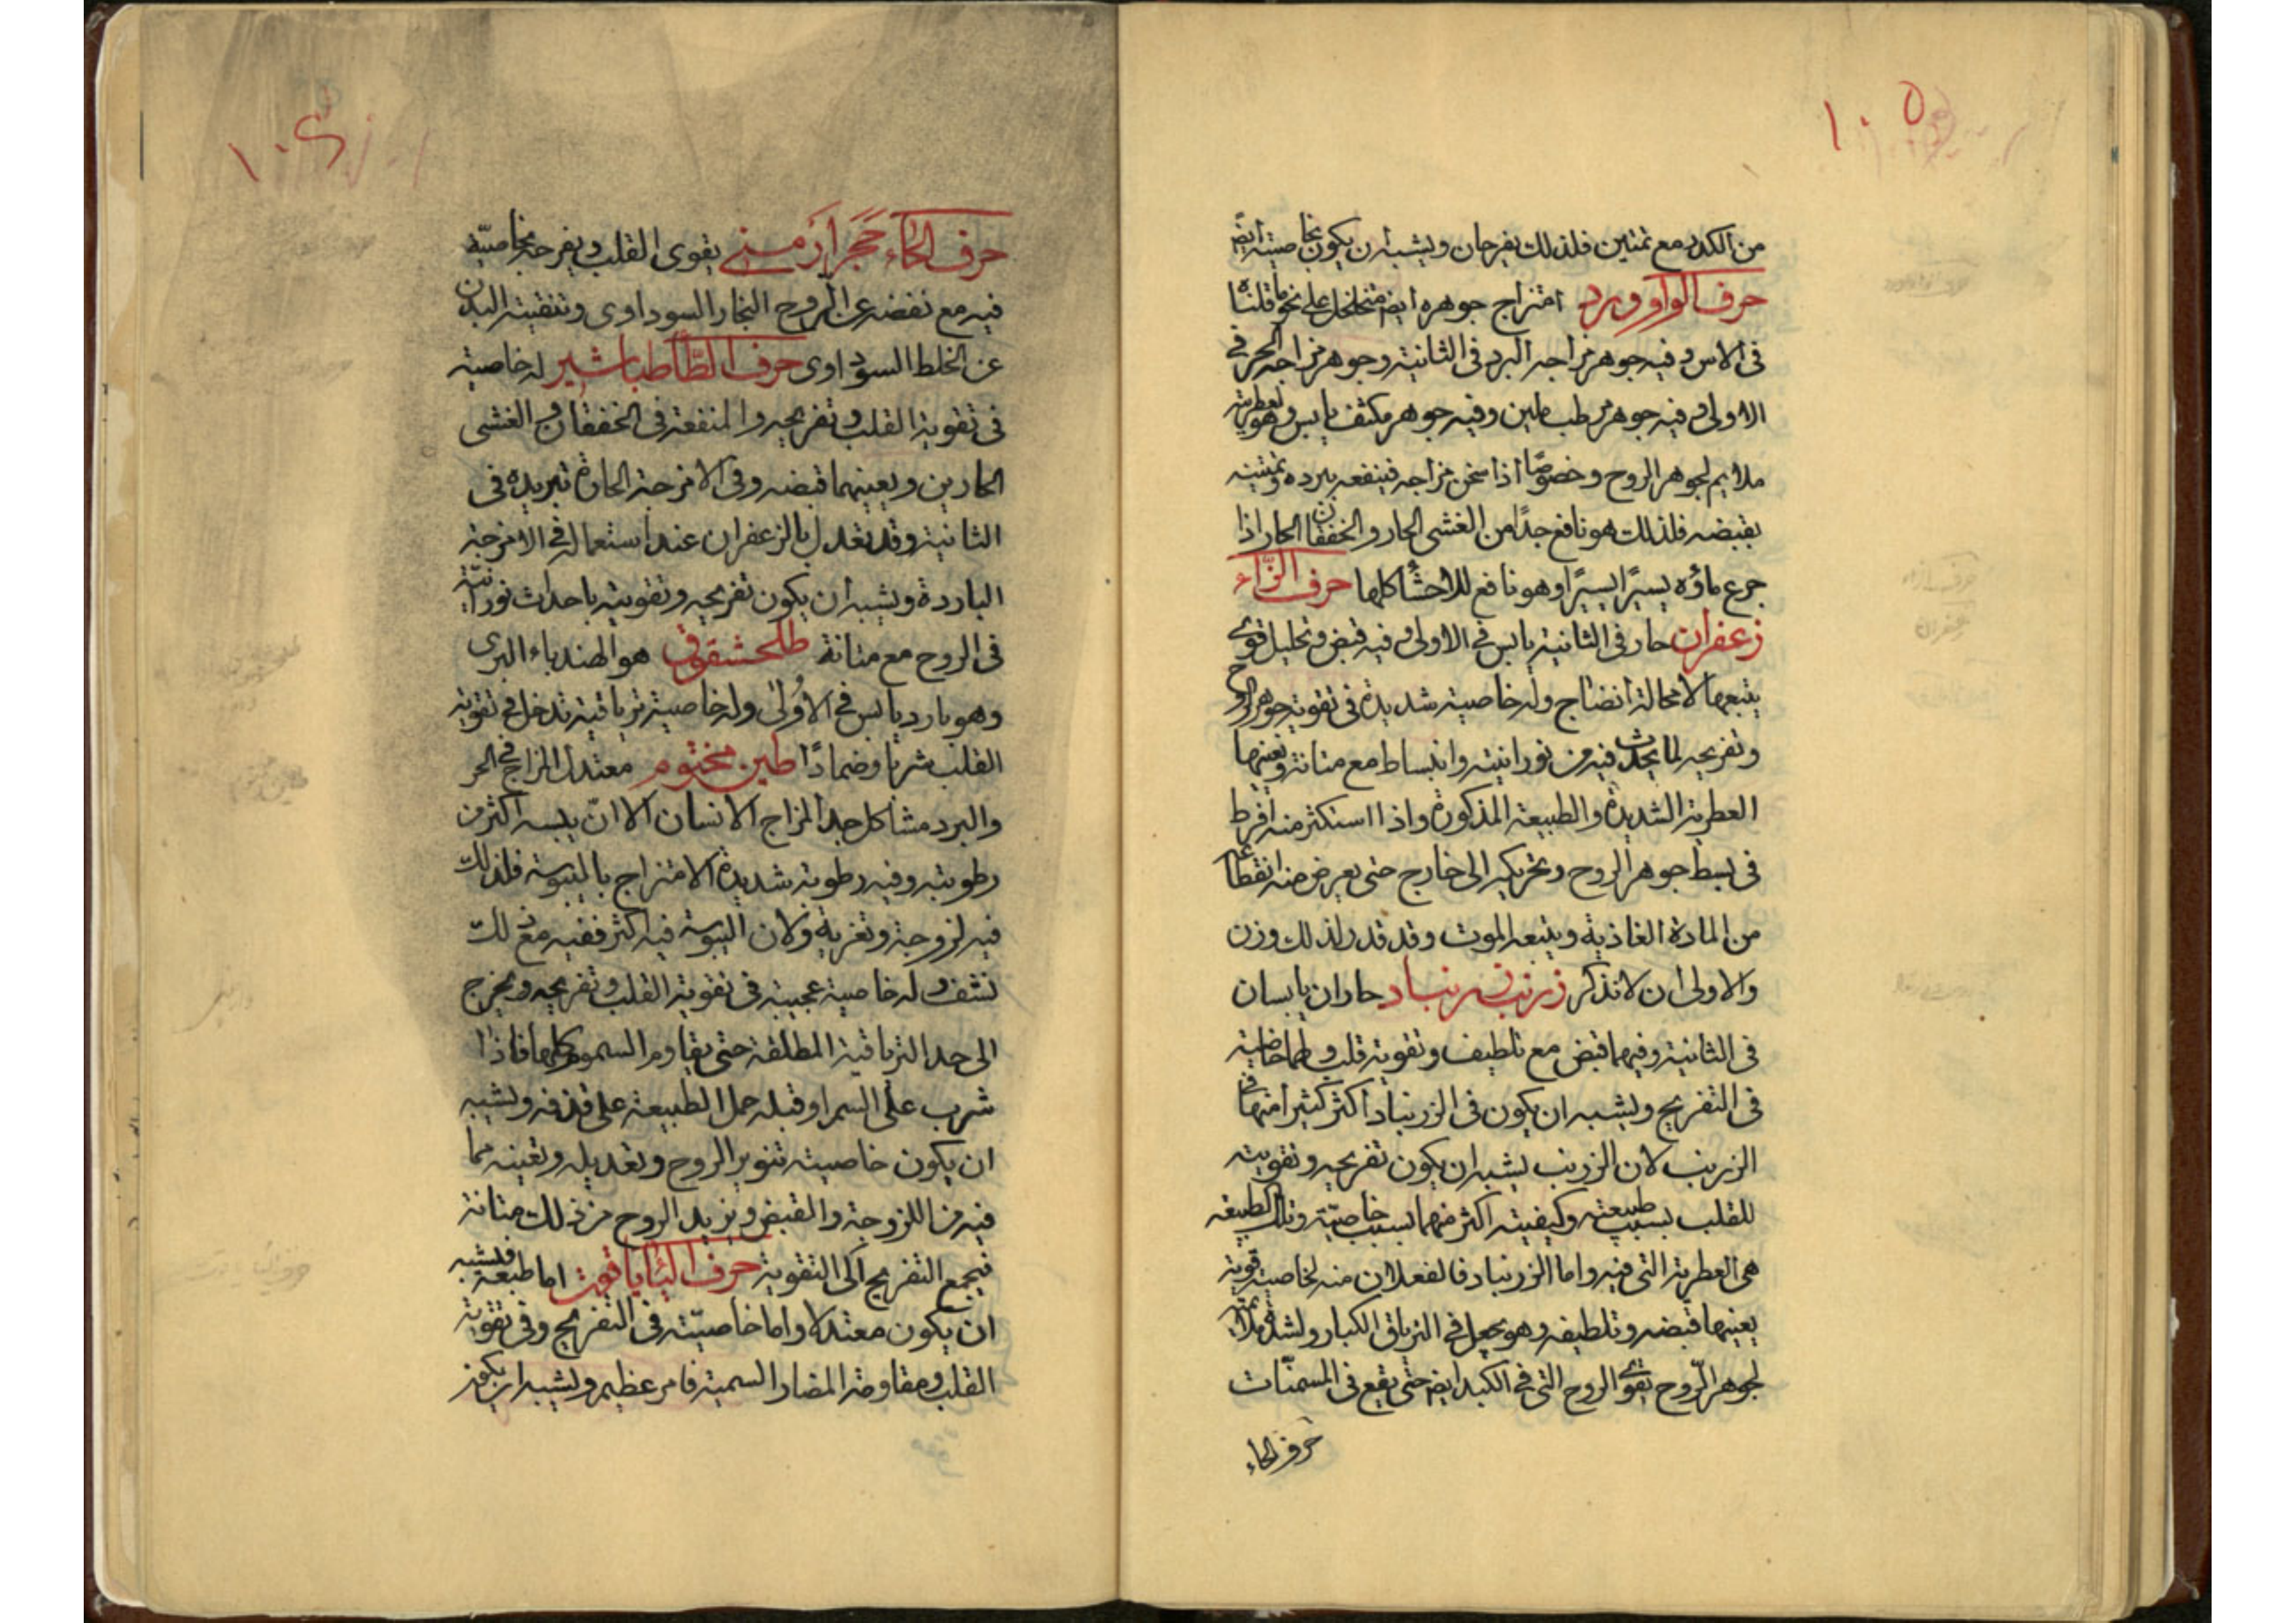 ١٠٥
من الكدر مع تمتين فلذلك يفرحان ويشبه ان يكون بخاصيته ايضً
حرف الواو ورد امتزاج جوهره ايضً متخلخل على نحو ما قلناه
فى الاس وفيه جوهر مزاجه البرد فى الثانية وجوهر مزاجه الحر فى
الاولى وفيه جوهر رطب ملين وفيه جوهر مكثف يابس وهو بعطريته
ملايم لجوهر الروح وخصوصًا اذا سخن مزاجه فينفعه ببرده وتمتينه
بقبضه فلذلك هو نافع جدًا من الغشى الحار والخفقان الحار اذا
جرع ماؤه يسيرًا يسيرًا وهو نافع للاحشأ كلها حرف الزّاء
زعفران حار فى الثانية يابس فى الاولى وفيه قبض وتحليل قوى
يتبعهما لامحالة انضاج وله خاصية شديدة فى تقوية جوهر الروح
وتفريحه لما يحدث فيه من نورانية وانبساط مع متانة وتعينهما
العطرية الشديدة والطبيعة المذكورة واذا استكثر منه افرط
فى بسط جوهر الروح وتحريكه الى خارج حتى يعرض منه انقطاعً
من المادة الغاذية ويتبعه الموت وقد قدر لذلك وزن
والاولى ان لا تذكر زرنب زرنباد حاران يابسان
فى الثانية وفيهما قبض مع تلطيف وتقوية قلب ولهما خاصية
فى التفريح ويشبه ان يكون فى الزرنباد اكثر كثيرًا منها فى
الزرنب لان الزرنب يشبه ان يكون تفريحه وتقويته
للقلب بسبب طبيعته وكيفيته اكثر منهما بسبب خاصيّته وتلك الطبيعه
هى العطرية التى فيه واما الزرنباد فالفعلان منه لخاصية قوية
يعينها قبضه وتلطيفه وهو يجعل فى الترياق الكبار ولشدة ملائمته
لجوهر الرّوح يقوى الروح التى فى الكبد ايضً حتى يقع فى المسمنّات
حرف الحاء
١٠٤
حرف الحاء حَجَر أرَمنى يقوى القلب ويفرحه بخاصيّة
فيه مع نفضه عن الروح البخار السوداوى وتنقيته البدن
عن الخلط السوداوى حرف الطّأ طباشير له خاصية
فى تقوية القلب وتفريحه والمنفعة فى الخفقان والغشى
الحارين ويعينهما قبضه وفى الامزجة الحارة تبريده فى
الثانية وقد يعدل بالزعفران عند استعماله فى الامزجة
الباردة ويشبه ان يكون تفريحه وتقويته باحداث نورانيّة
فى الروح مع متانة طلحشقوق هو الهندباء البرى
وهو بارد يابس فى الاُولى وله خاصية ترياقية تدخل فى تقوية
القلب شربا وضمادًا طين مختوم معتدل المزاج فى الحر
والبرد مشاكل جدا لمزاج الانسان الا انّ يبسه اكثر من
رطوبته وفيه رطوبة شديدة الامتزاج باليبوسة فلذلك
فيه لزوجة وتغرية ولان اليبوسة فيه اكثر ففيه مع ذلك
نشف وله خاصية عجيبة فى تقوية القلب وتفريحه ويخرج
الى حد الترياقية المطلقة حتى يقاوم السموم كلها فاذا
شرب على السم او قبله حمل الطبيعة على قذفه ويشبه
ان يكون خاصيته تنوير الروح وتعديله وتعينه مما
فيه من اللزوجة والقبض ويزيد الروح مع ذلك متانة
فيجمع التفريح الى التقوية حرف اليأ ياقوت اما طبعه فيشبه
ان يكون معتدلا واما خاصيّته فى التفريح وفى تقوية
القلب ومقاومة المضار السمية فامر عظيم ويشبه ان يكون